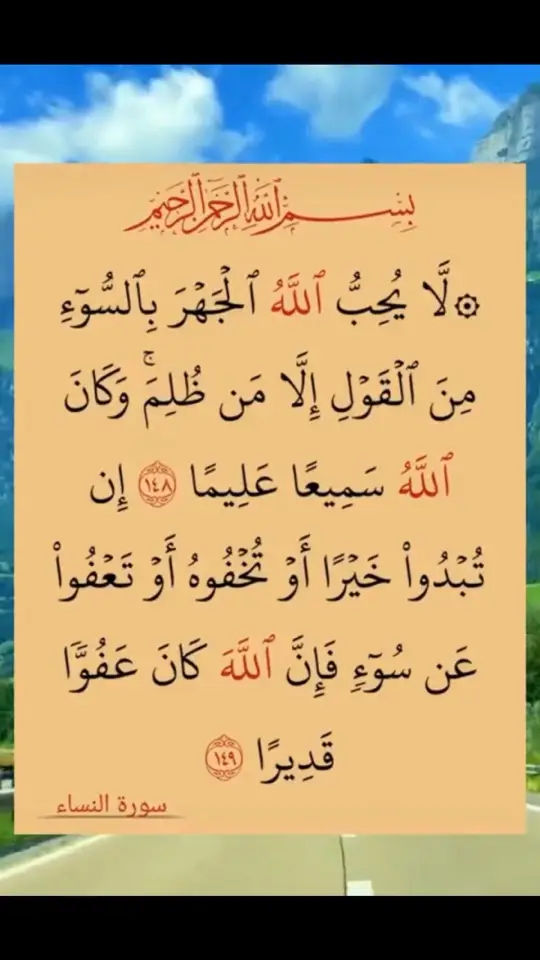 بِسْمِ اللَّهِ الرَّحْمَٰنِ الرَّحِيمِ
۞ لَّا يُحِبُّ ٱللَّهُ ٱلْجَهْرَ بِٱلسُّوٓءِ
مِنَ ٱلْقَوْلِ إِلَّا مَن ظُلِمَ ۚ وَكَانَ
ٱللَّهُ سَمِيعًا عَلِيمًا ١٤٨ إِن
تُبْدُوا۟ خَيْرًا أَوْ تُخْفُوهُ أَوْ تَعْفُوا۟
عَن سُوٓءٍ فَإِنَّ ٱللَّهَ كَانَ عَفُوًّا
قَدِيرًا ١٤٩
سورة النساء